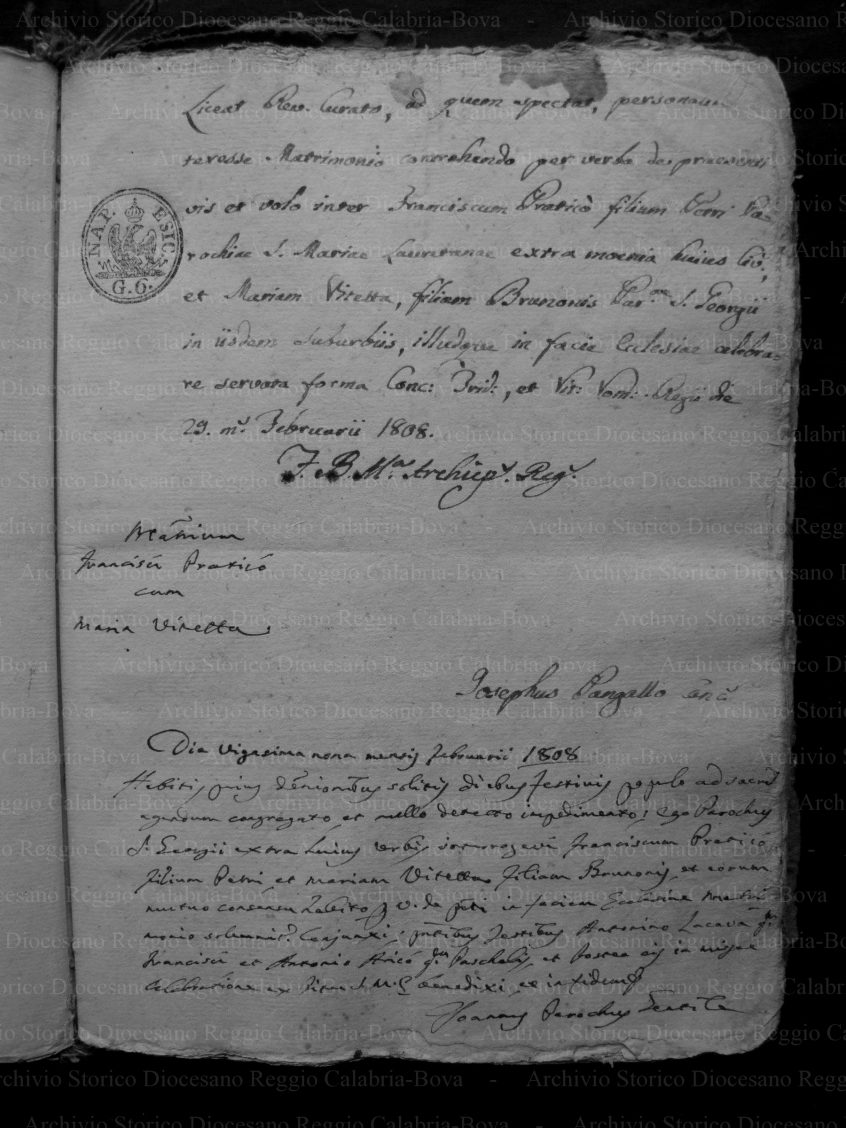 Archivio Storico Diocesano Reggio Calabria-Bova
Liceat Rev. Curato, ad quem spectat, personaliter
teresse Matrimonio contrahendo per verba de praesenti
vis et volo inter Franciscum Praticò filium Petri Pa=
rochiae S. Mariae Lauretanae extra moenia huius Civ.,
et Mariam Vitetta, filiam Brunonis Par. S. Georgii
in iisdem suburbiis, illudque in facie Eclesiae celebra=
re servata forma Conc: Trid:, et Rit: Rom: Regii die
29. m.s Februarii 1808.
F. B. M.a Archiep.s Reg.s
NAP. E SIC.
G. 6.
Franciscii Praticò
cum
Maria Vitetta
Josephus Pangallo
Die Vigesima nona mensis Februarii 1808
Habitis prius solitis diebus festivis populo ad sacra
agendum congregato, et nullo detecto impedimento; ego Parochus
S. Georgii extra huius Urbis interrogavi Franciscum Praticò
filium Petri et Mariam Vitetta filiam Brunonis, et eorum
mutuo consensu habito p. v. de pnti in faciem Ecclesiae Matri
monio solemnit.r Conjunxi; pntibus testibus Antonino Lacava qm
Francisci et Antonio Aricò qm Paschalis, et Postea eis in missae
Celebratione ex Ritu S. M. E. benedixi, et in fidem
Joannes Parochus Gentile